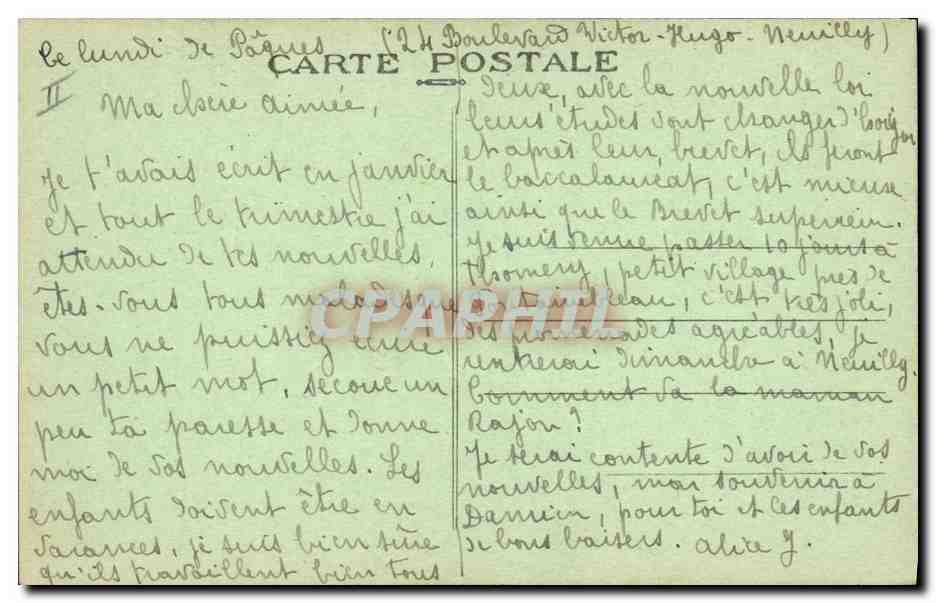 Le lundi de Pâques (24 Boulevard Victor-Hugo. Neuilly)
CARTE POSTALE
II
Ma chère aimée,
Je t'avais écrit en janvier
et tout le trimestre j'ai
attendu de tes nouvelles,
êtes-vous tous malades que
vous ne puissiez écrire
un petit mot, secoue un
peu ta paresse et donne
moi de vos nouvelles. Les
enfants doivent être en
vacances, je suis bien sûre
qu'ils travaillent bien tous
deux, avec la nouvelle loi
leurs études vont changer d'
et après leur brevet, ils feront
le baccalaureat, c'est mieux
ainsi que le Brevet supérieur.
Je suis venue passer 10 jours à
Thomery, petit village près de
Fontainebleau, c'est très joli,
des promenades agréables, je
rentrerai dimanche à Neuilly.
Comment va la maman
Rajon?
Je serai contente d'avoir de vos
nouvelles, mon souvenir à
Damien, pour toi et les enfants
de bons baisers. Alice J.
CPARPHIL